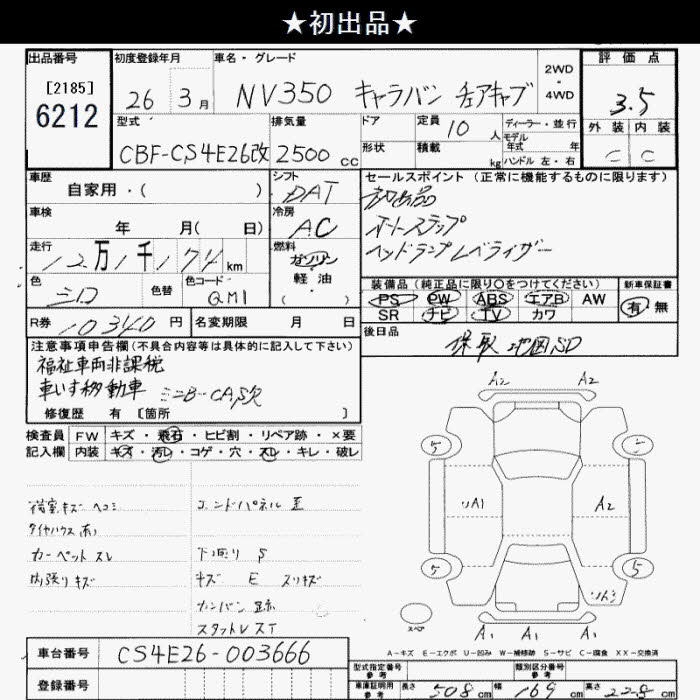 ★初出品★
出品番号 初度登録年月 車名・グレード 2WD・4WD 評価点
[2185]
6212
26年 3月 NV350 キャラバン チェアキャブ 3.5
型式 排気量 ドア 定員 10人 ディーラー・並行 外装 内装
CBF-CS4E26改 2500cc 形状 積載 kg モデル年式 年 ハンドル 左・右 C C
車歴 自家用・( ) シフト DAT セールスポイント (正常に機能するものに限ります)
初出品
車検 年 月( 日) 冷房 AC オートステップ
ヘッドランプレベライザー
走行 12万1千174km 燃料 ガソリン 軽油・( )
色 シロ 色替 色コード QM1
装備品 (純正品に限り○をつけてください) 新車保証書
PS PW ABS エアB AW 有 無
SR ナビ TV カワ
R券 10340円 名変期限 月 日
後日品 保取 地図SD
注意事項申告欄(不具合内容等は具体的に記入して下さい)
福祉車両非課税
車いす移動車
修復歴 有 [箇所 ]
検査員 FW キズ・飛石・ヒビ割・リペア跡・×要
記入欄 内装 キズ・汚レ・コゲ・穴・スレ・キレ・破レ
荷室キズ ヘコミ エンドパネル
カーペット スレ 下回り S
内張りキズ キズ E スリキズ
A2 A2
5 5
A1 A2
5 5
A1 A1 A1
スペア
A-キズ E-エクボ U-凹み W-補修跡 S-サビ C-腐食 XX-交換済
車台番号 CS4E26-003666
登録番号
型式指定番号 参考 類別区分番号 参考
車庫証明用 参考 長さ 508cm 幅 169cm 高さ 228cm